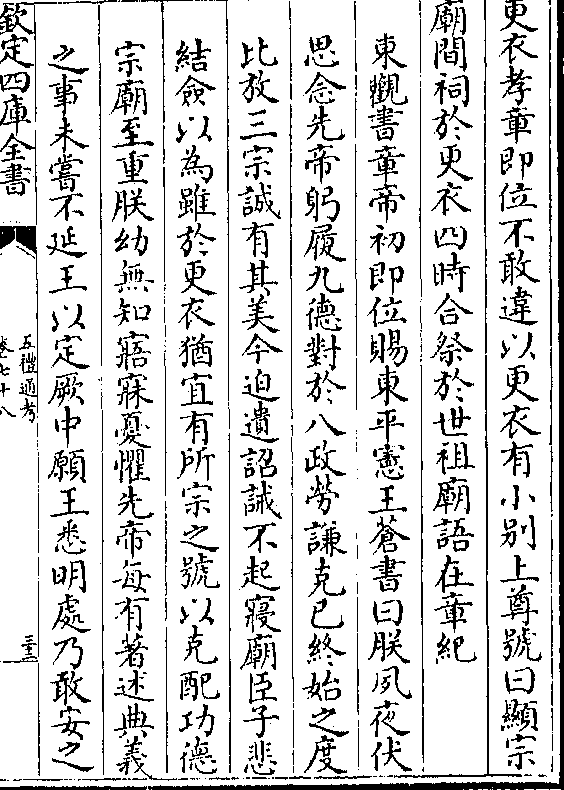 更衣孝章即位不敢違以更衣有小别上尊號曰顯宗
廟間祠於更衣四時合祭於世祖廟語在章紀
東觀書章帝初即位賜東平憲王蒼書曰朕夙夜伏
思念先帝躬履九德對於八政勞謙克已終始之度
比放三宗誠有其美今迫遺詔誡不起寢廟臣子悲
結僉以為雖於更衣猶宜有所宗之號以克配功德
宗廟至重朕幼無知寤寐憂懼先帝每有著述典義
之事未嘗不延王以定厥中願王悉明處乃敢安之
欽定四庫全書
五禮通考
卷七十八
三十三